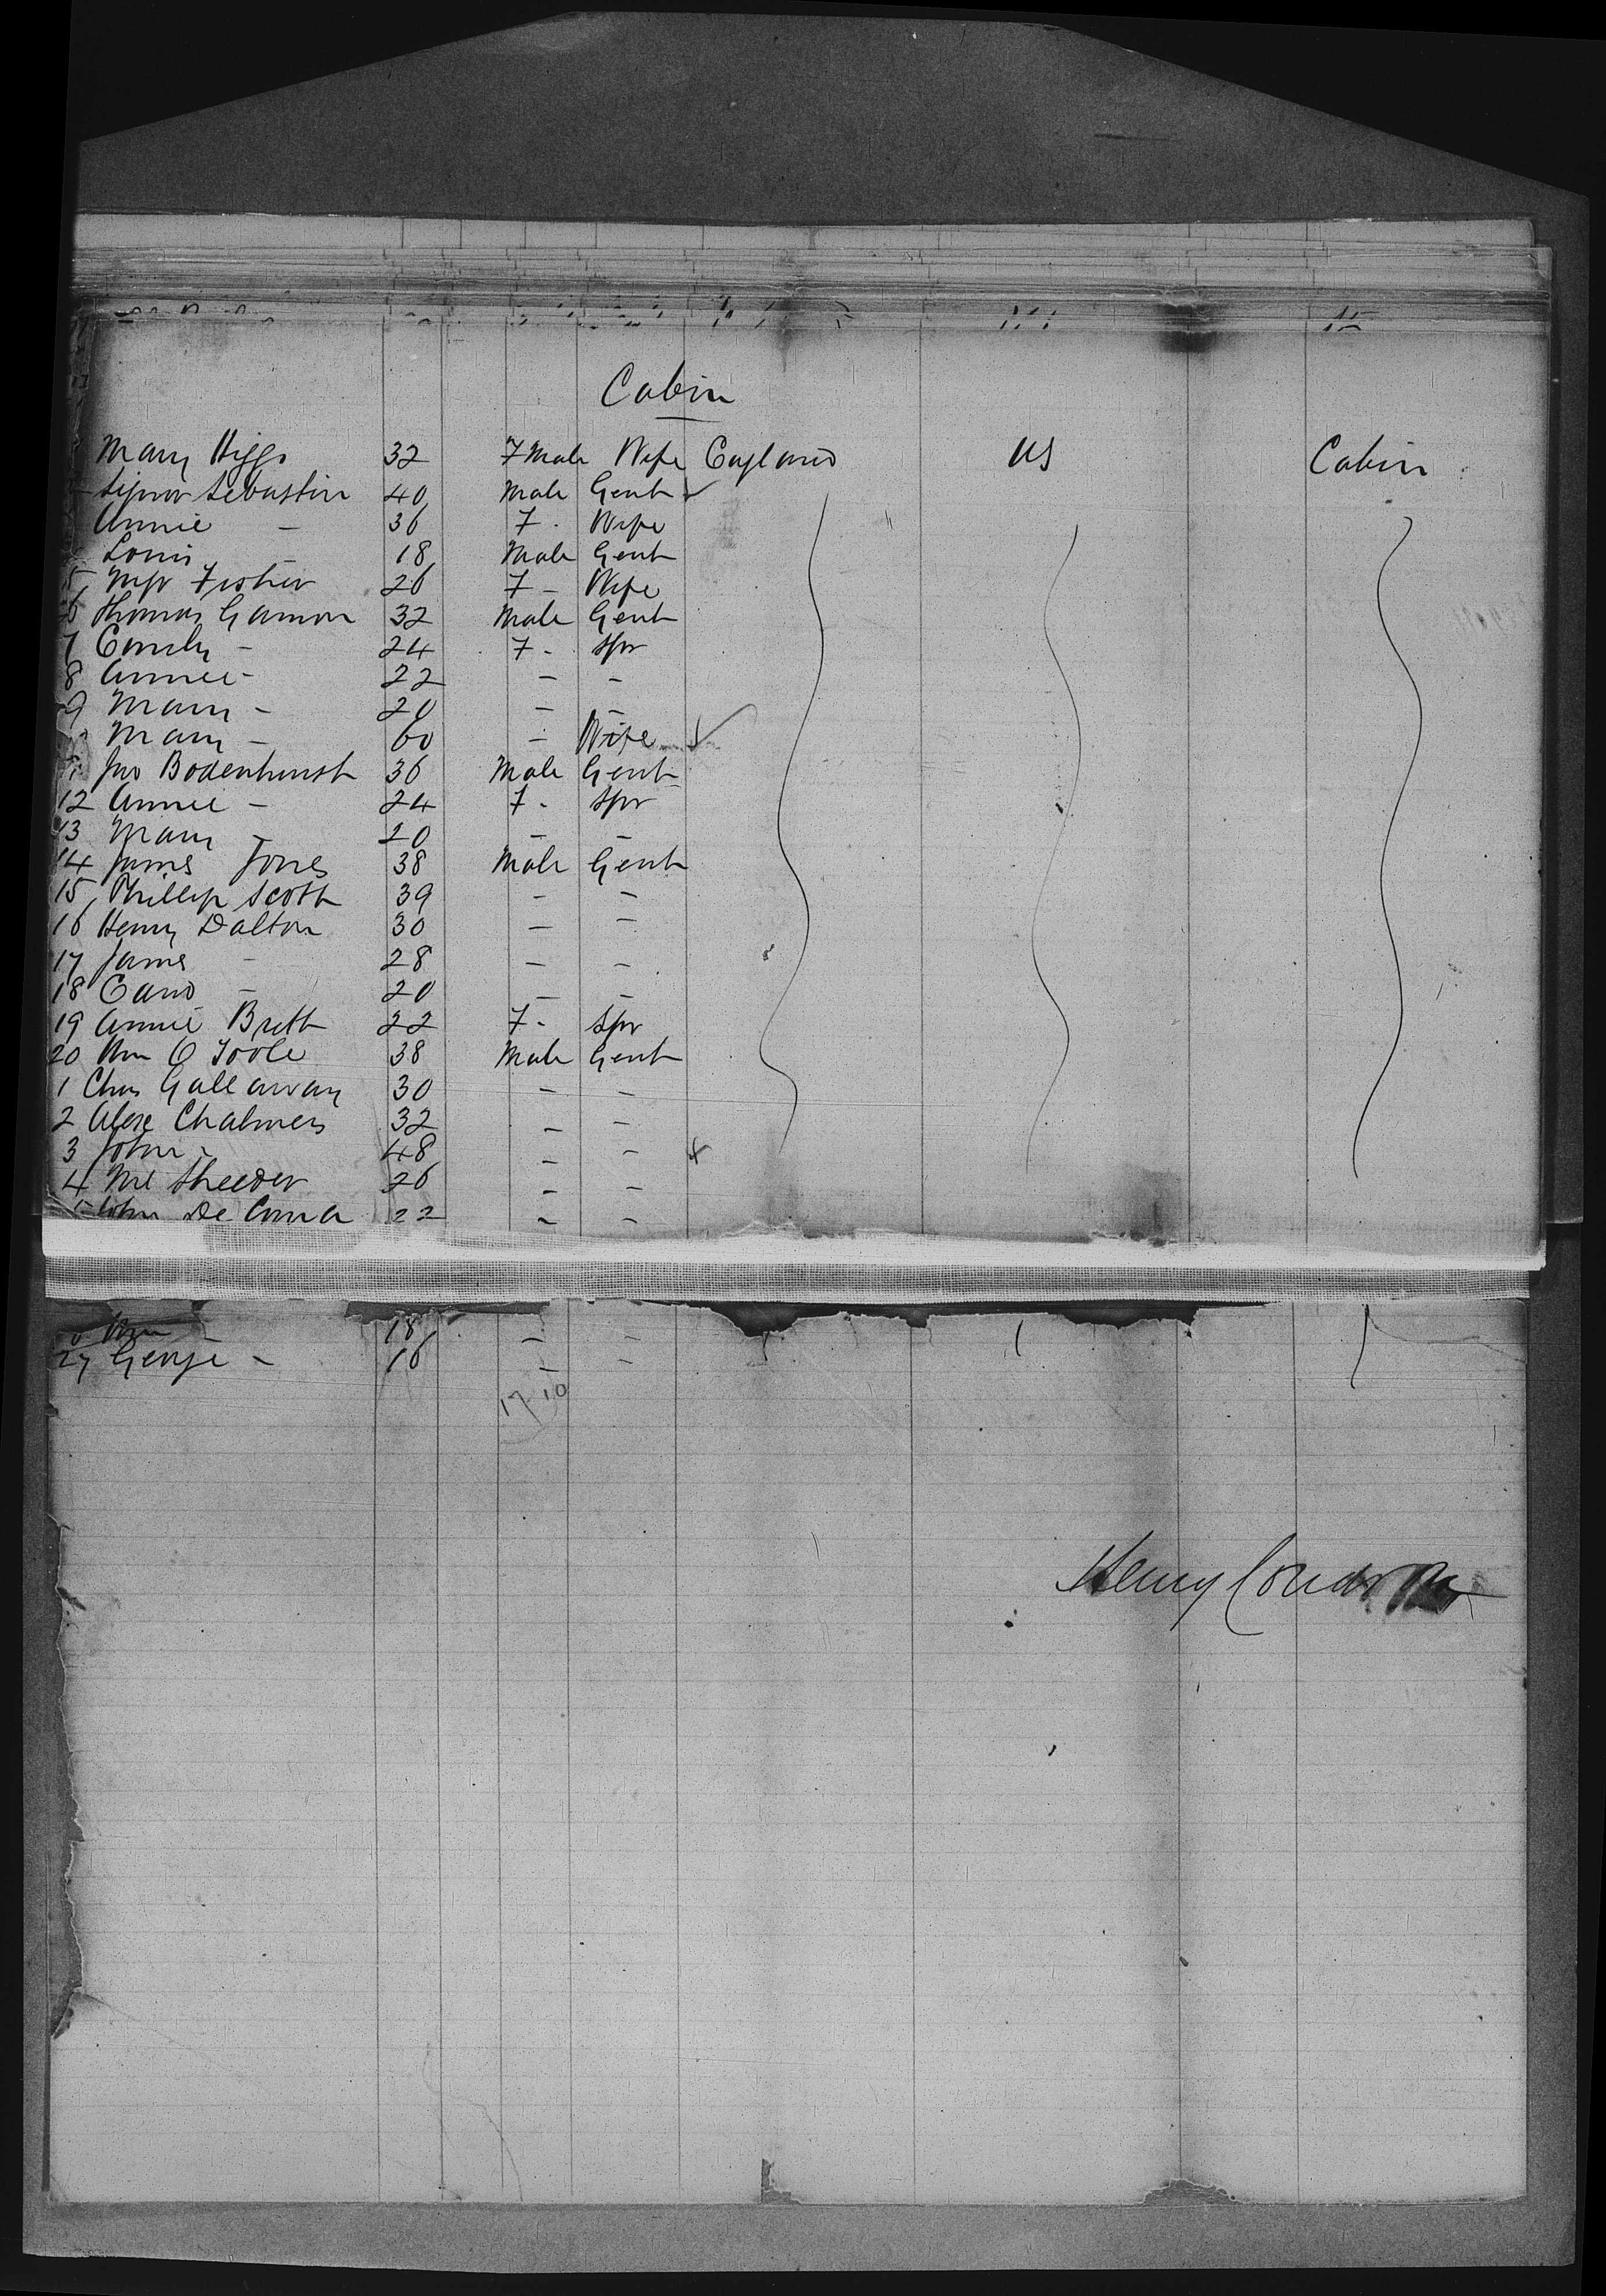 Cabin
Mary Higgs 32 Female Wife England US Cabin
Signor Sebastin 40 Male Gent
Annie - 36 F - Wife
Louis - 18 Male Gent
5 Mrs Fisher 26 F - Wife
6 Thomas Gamon 32 Male Gent
7 Emily - 24 F - Spr
8 Annie - 22 - -
9 Mary - 20 - -
Mary - 60 - Wife
Jno Bodenhurst 36 Male Gent
12 Annie - 24 F - Spr
13 Mary - 20 - -
14 James Jones 38 Male Gent
15 Phillip Scott 39 - -
16 Henry Dalton 30 - -
17 James - 28 - -
18 - 20 - -
19 Annie Brett 22 F - Spr
20 Wm O Toole 38 Male Gent
1 Chas Gallaway 30 - -
2 Alex Chalmers 32 - -
3 John - 48 - -
4 26 - -
5 John De 22 - -
Wm - 18 - -
27 George - 16 - -
17 10
Henry